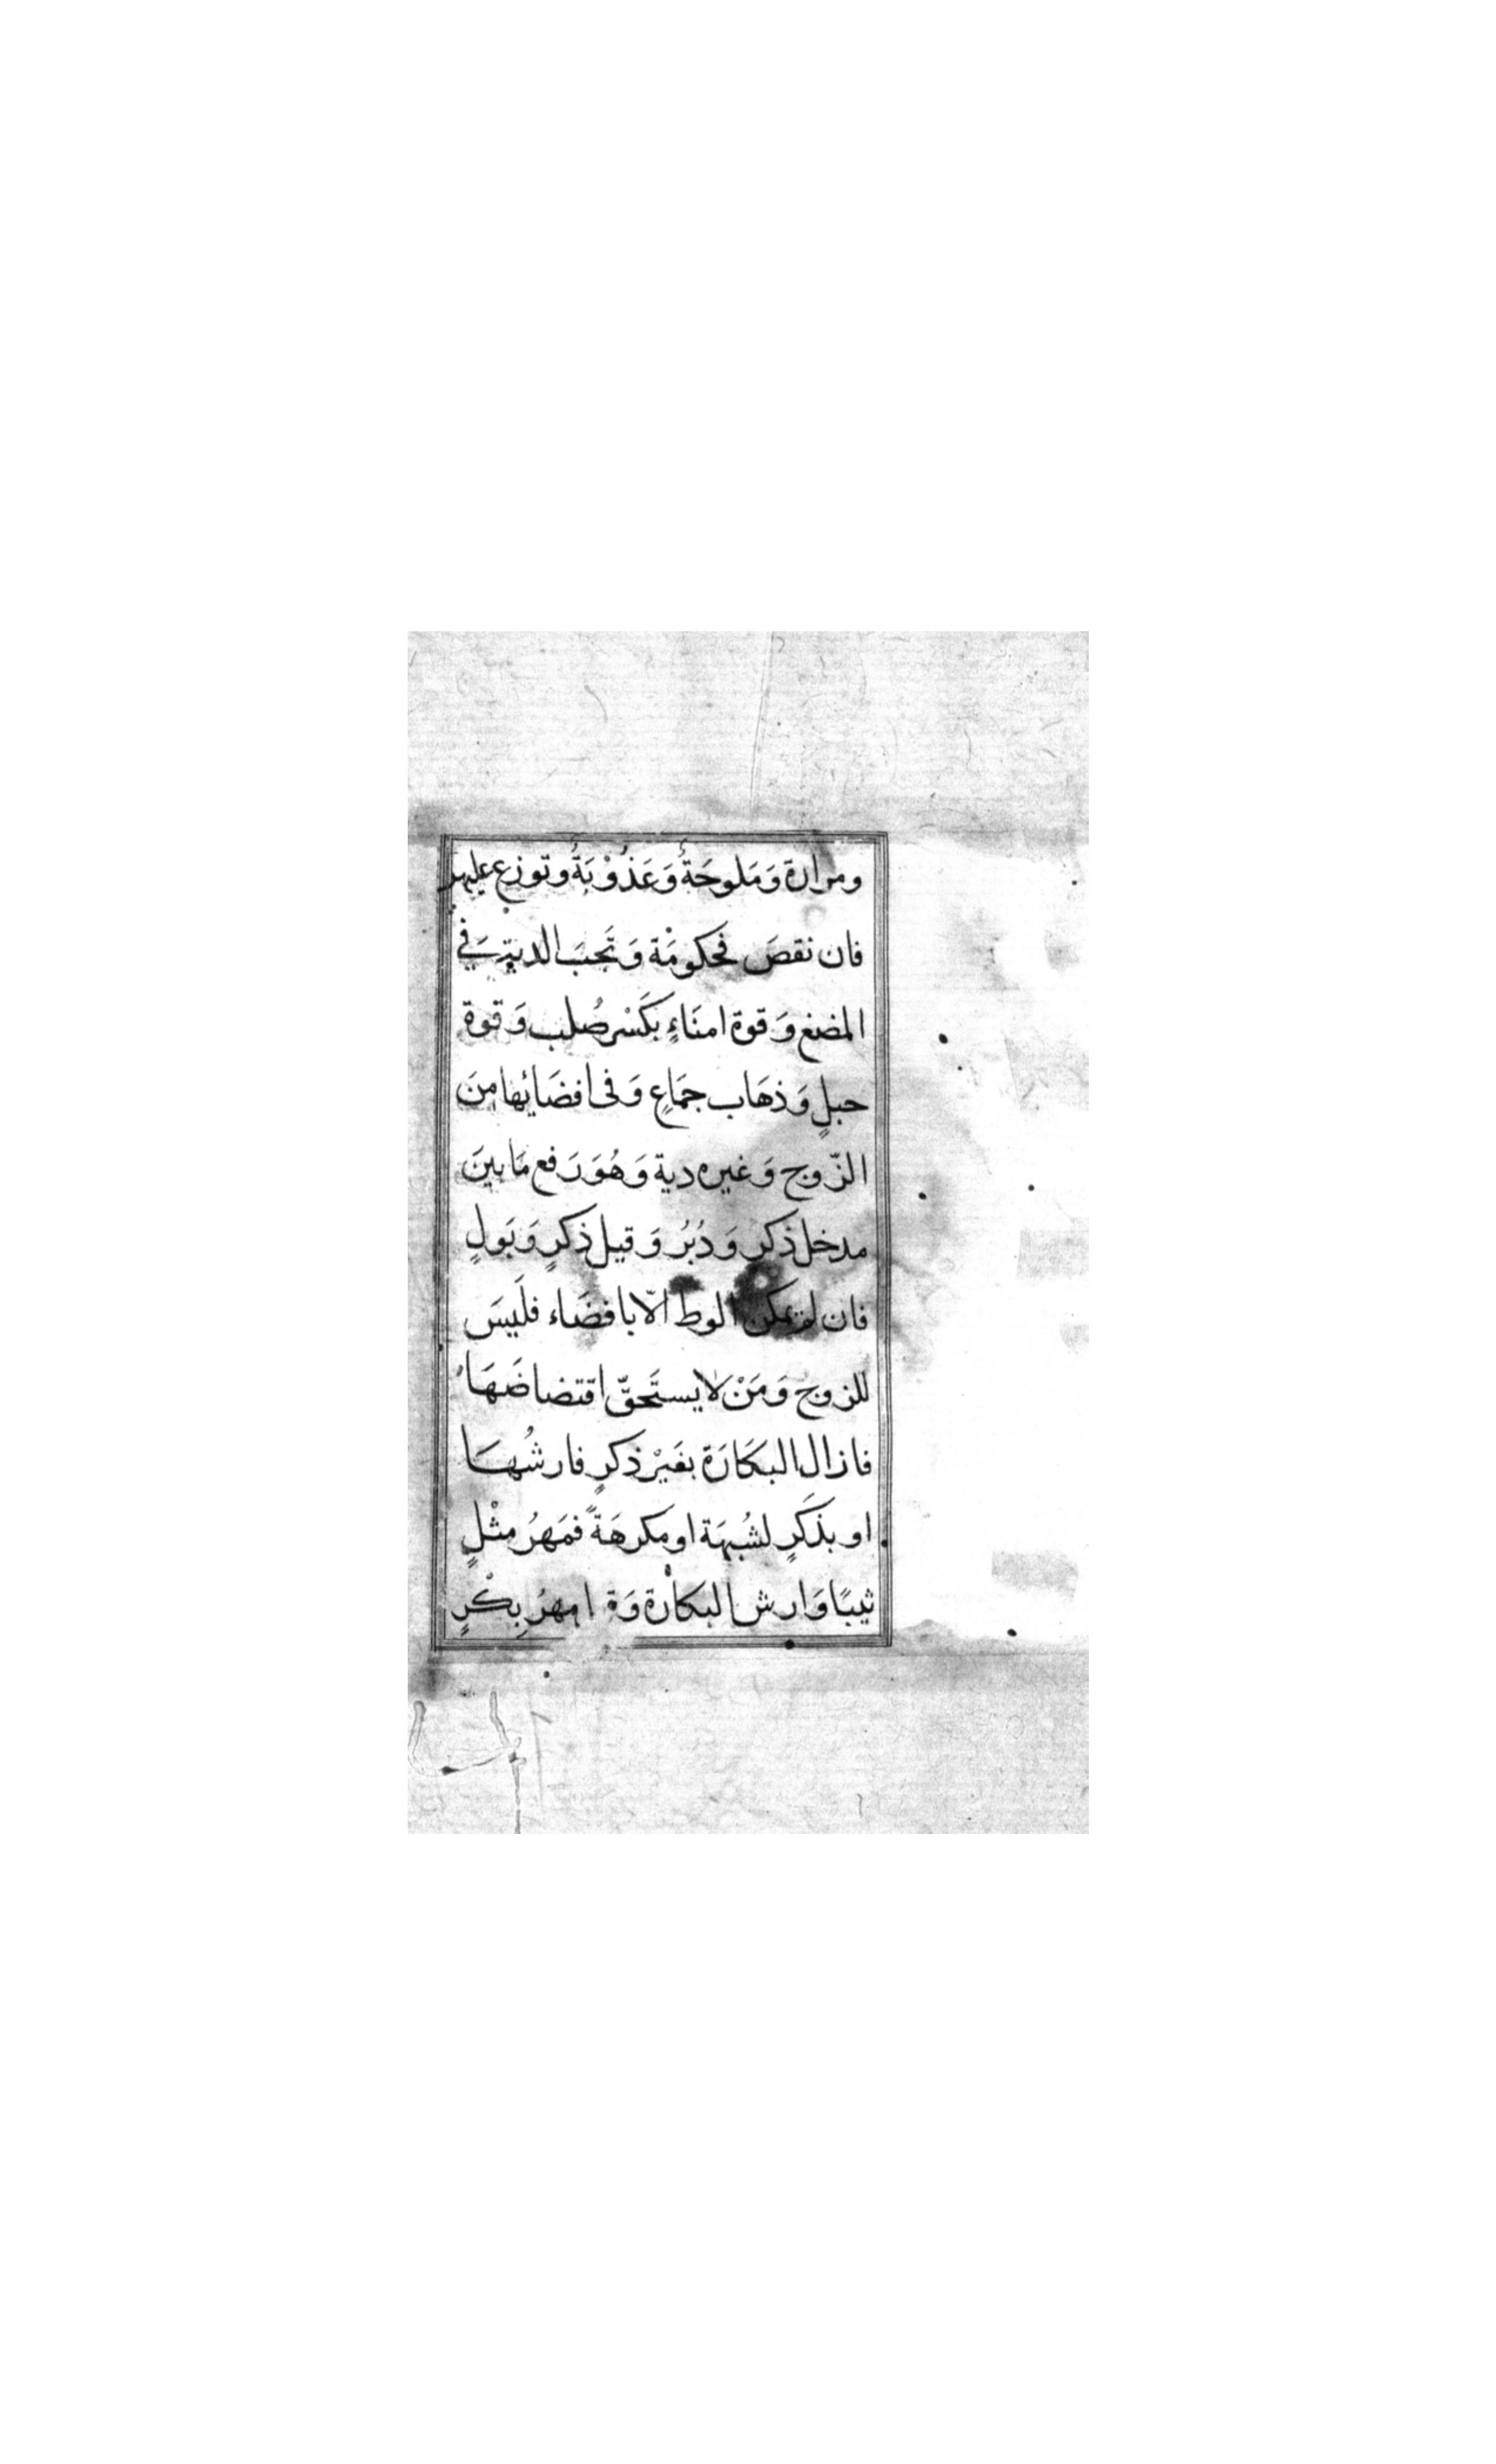 ومرارة وَمَلوحَةٌ وَعَذُوْبَةٌ وتوزع عليهن
فان نقصَ فحكومَةْ وَتَجبَ الديةِ في
المضغ وَقوة امنَاءٍ بكَسْرصُلب وَقوة
حبلٍ وَذهَاب جمَاعٍ وَفى افضَائِها مِنَ
الزّوج وَغيره دية وَهُوَرَفع مَابينَ
مدخل ذكر وَدُبُر وَقيل ذكرٍ وَبَولٍ
فان لم يمكن الوطء الاّ بافضَاء فلَيسَ
للزوج وَمَنْ لايستَحقّ اقتضاضَهَا
فازال البَكَارَة بغَيْر ذكرٍ فارشُهَا
او بذَكَرٍ لشُبهَة اومَكرهَةً فمَهرُ مِثْلٍ
ثيبًا وَارش البكارة وَ مهرُ بِكْرٍ